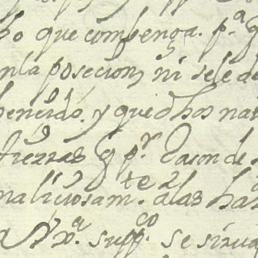 que combenga. p.ª
en la posecion, ni se le de
bencido. y que dhos nat
tierras q p.r Razon de
maliciosam.te a las ha
supp.co se sirua